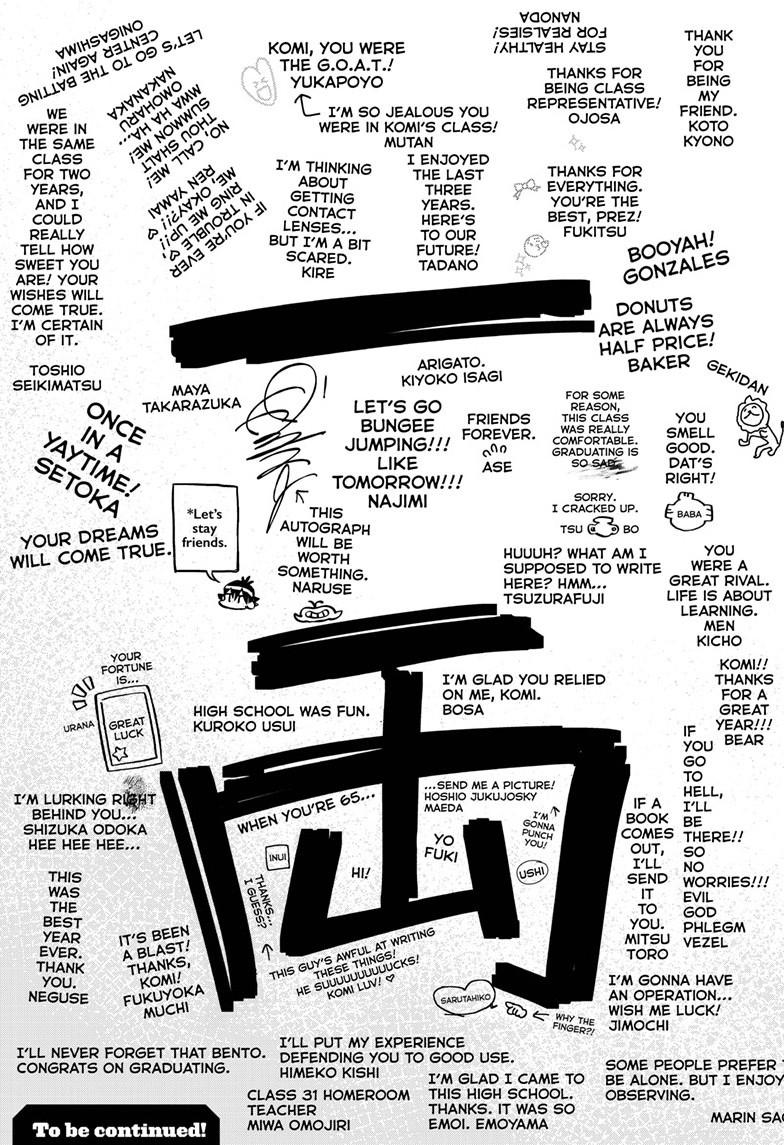 LET'S GO TO THE BATTING
CENTER AGAIN!
ONIGASHIMA
KOMI, YOU WERE
THE G.O.A.T.!
YUKAPOYO
STAY HEALTHY!
FOR REALSIES!
NANODA
THANK
YOU
FOR
BEING
MY
FRIEND.
KOTO
KYONO
NO, CALL ME!
THOU SHALT
SUMMON ME!
MWA HA HA...
OMOHARU
NAKANAKA
I'M SO JEALOUS YOU
WERE IN KOMI'S CLASS!
MUTAN
THANKS FOR
BEING CLASS
REPRESENTATIVE!
OJOSA
WE
WERE IN
THE SAME
CLASS
FOR TWO
YEARS,
AND I
COULD
REALLY
TELL HOW
SWEET YOU
ARE! YOUR
WISHES WILL
COME TRUE.
I'M CERTAIN
OF IT.
TOSHIO
SEIKIMATSU
IF YOU'RE EVER
IN TROUBLE,
RING ME UP!! ♡
ME, OKAY?!! ♡
REN YAMAI
I'M THINKING
ABOUT
GETTING
CONTACT
LENSES...
BUT I'M A BIT
SCARED.
KIRE
I ENJOYED
THE LAST
THREE
YEARS.
HERE'S
TO OUR
FUTURE!
TADANO
THANKS FOR
EVERYTHING.
YOU'RE THE
BEST, PREZ!
FUKITSU
BOOYAH!
GONZALES
DONUTS
ARE ALWAYS
HALF PRICE!
BAKER
GEKIDAN
MAYA
TAKARAZUKA
ARIGATO.
KIYOKO ISAGI
ONCE
IN A
YAYTIME!
SETOKA
LET'S GO
BUNGEE
JUMPING!!!
LIKE
TOMORROW!!!
NAJIMI
FRIENDS
FOREVER.
ASE
FOR SOME
REASON,
THIS CLASS
WAS REALLY
COMFORTABLE.
GRADUATING IS
SO SAD.
SORRY.
I CRACKED UP.
TSU BO
YOU
SMELL
GOOD.
DAT'S
RIGHT!
BABA
YOUR DREAMS
WILL COME TRUE.
*Let's
stay
friends.
THIS
AUTOGRAPH
WILL BE
WORTH
SOMETHING.
NARUSE
HUUUH? WHAT AM I
SUPPOSED TO WRITE
HERE? HMM...
TSUZURAFUJI
YOU
WERE A
GREAT RIVAL.
LIFE IS ABOUT
LEARNING.
MEN
KICHO
YOUR
FORTUNE
IS...
URANA
GREAT
LUCK
HIGH SCHOOL WAS FUN.
KUROKO USUI
I'M GLAD YOU RELIED
ON ME, KOMI.
BOSA
KOMI!!
THANKS
FOR A
GREAT
YEAR!!!
BEAR
I'M LURKING RIGHT
BEHIND YOU...
SHIZUKA ODOKA
HEE HEE HEE...
WHEN YOU'RE 65...
...SEND ME A PICTURE!
HOSHIO JUKUJOSKY
MAEDA
INUI
HI!
YO
FUKI
I'M
GONNA
PUNCH
YOU!
USHI
IF A
BOOK
COMES
OUT,
I'LL
SEND
IT
TO
YOU.
MITSU
TORO
IF
YOU
GO
TO
HELL,
I'LL
BE
THERE!!
SO
NO
WORRIES!!!
EVIL
GOD
PHLEGM
VEZEL
THIS
WAS
THE
BEST
YEAR
EVER.
THANK
YOU.
NEGUSE
IT'S BEEN
A BLAST!
THANKS,
KOMI!
FUKUYOKA
MUCHI
THANKS...
I GUESS?
THIS GUY'S AWFUL AT WRITING
THESE THINGS!
HE SUUUUUUUUUCKS!
KOMI LUV! ♡
SARUTAHIKO
WHY THE
FINGER?!
I'M GONNA HAVE
AN OPERATION...
WISH ME LUCK!
JIMOCHI
I'LL NEVER FORGET THAT BENTO.
CONGRATS ON GRADUATING.
I'LL PUT MY EXPERIENCE
DEFENDING YOU TO GOOD USE.
HIMEKO KISHI
CLASS 31 HOMEROOM
TEACHER
MIWA OMOJIRI
I'M GLAD I CAME TO
THIS HIGH SCHOOL.
THANKS. IT WAS SO
EMOI. EMOYAMA
SOME PEOPLE PREFER
BE ALONE. BUT I ENJOY
OBSERVING.
MARIN
To be continued!